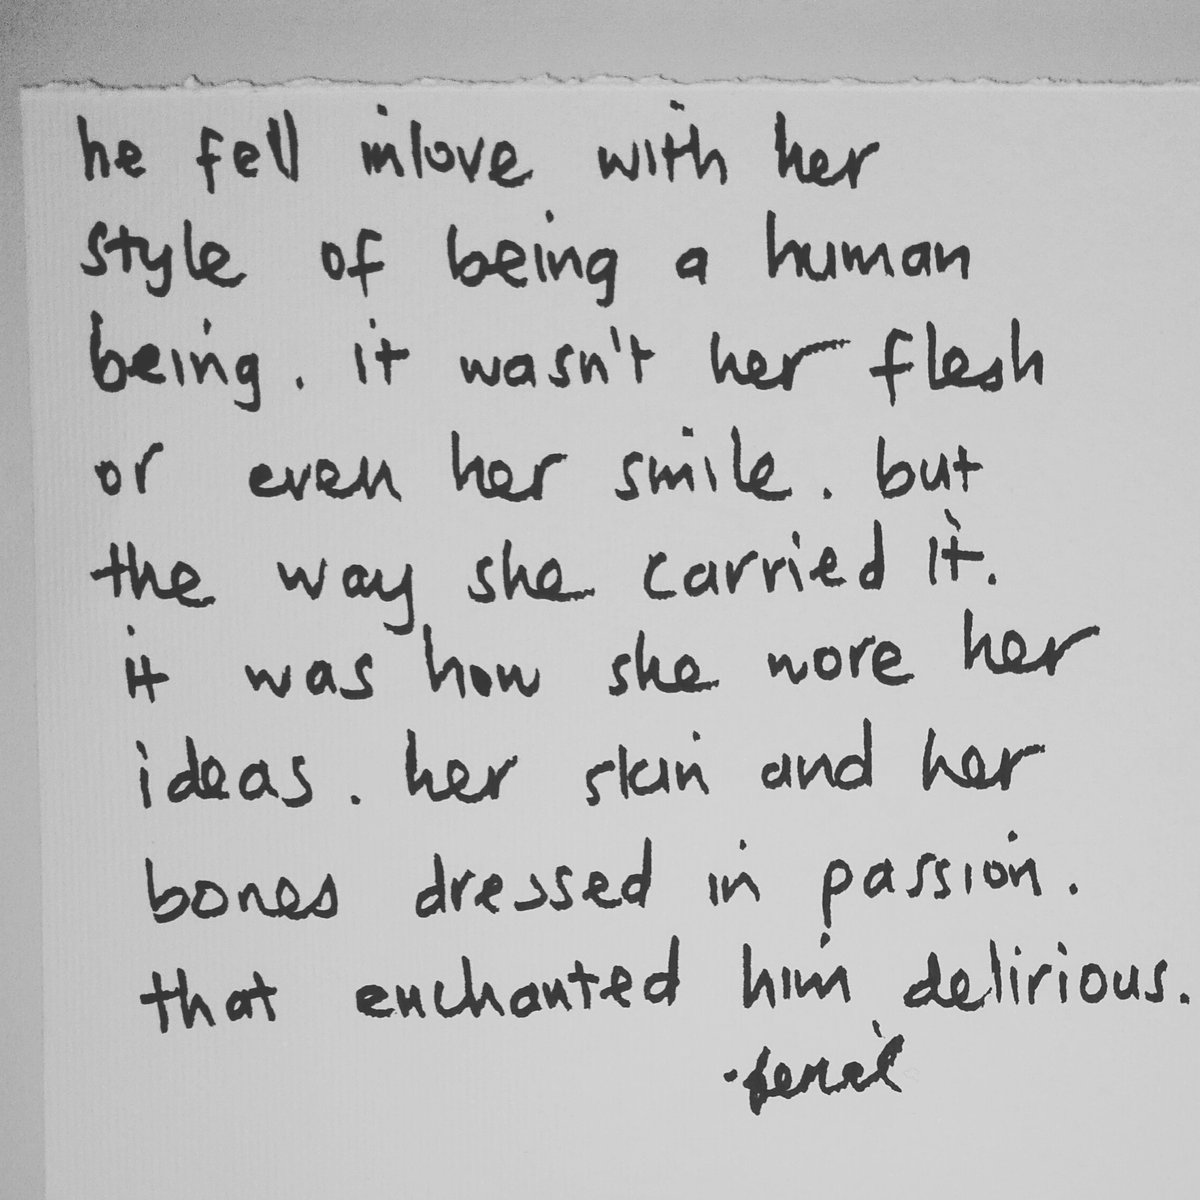 he fell inlove with her
style of being a human
being. it wasn't her flesh
or even her smile. but
the way she carried it.
it was how she wore her
ideas. her skin and her
bones dressed in passion.
that enchanted him delirious.